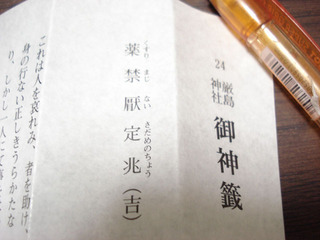 24
厳島神社 御神籤
くすり まじ ない さだめのちょう
薬禁厭定兆(吉)
これは人を哀れみ、
者を助け、
身の行ない正しきうらかたな
り、しかし一人にて